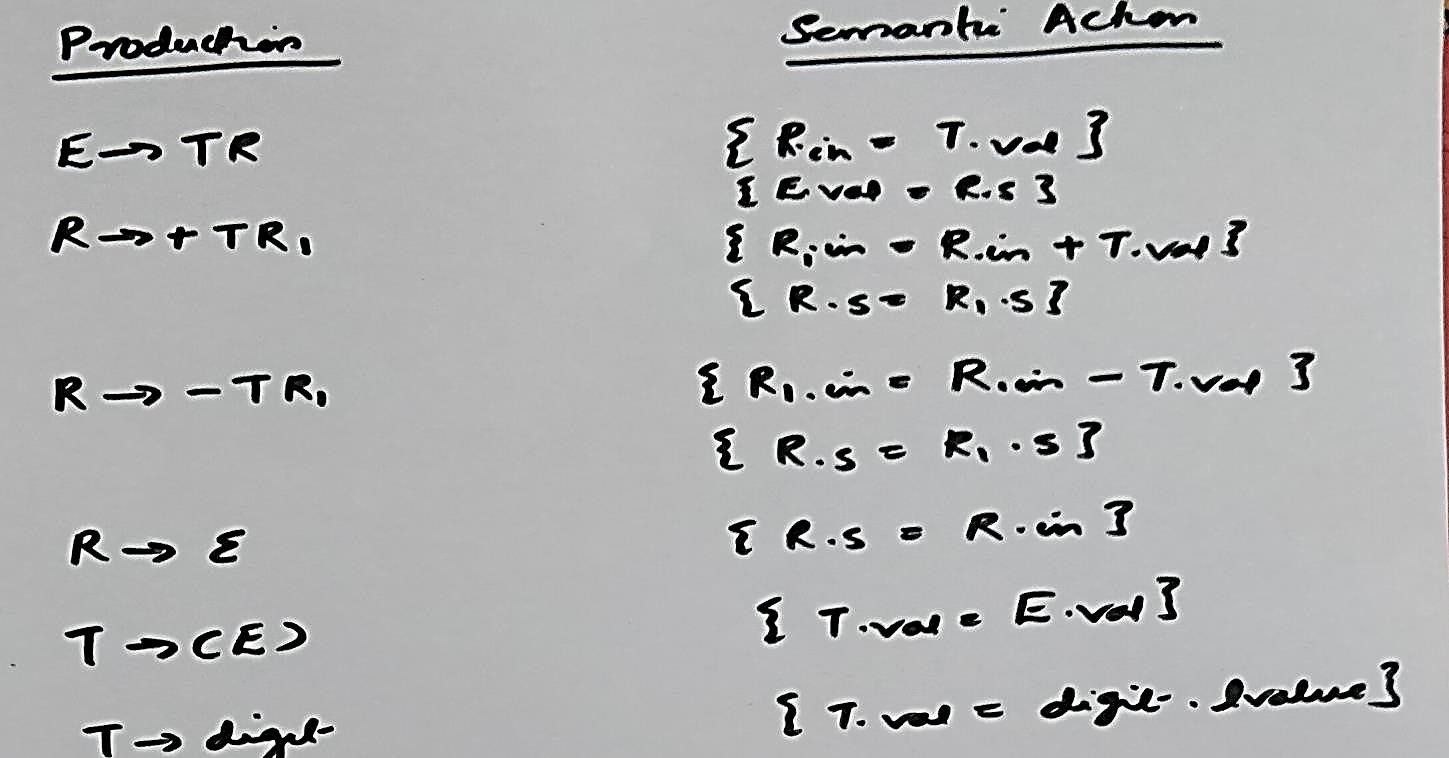 Production Semantic Action
E → TR { R.in = T.val }
{ E.val = R.s }
R → + TR₁ { R₁.in = R.in + T.val }
{ R.s = R₁.s }
R → - TR₁ { R₁.in = R.in - T.val }
{ R.s = R₁.s }
R → ε { R.s = R.in }
T → (E) { T.val = E.val }
T → digit { T.val = digit.lvalue }